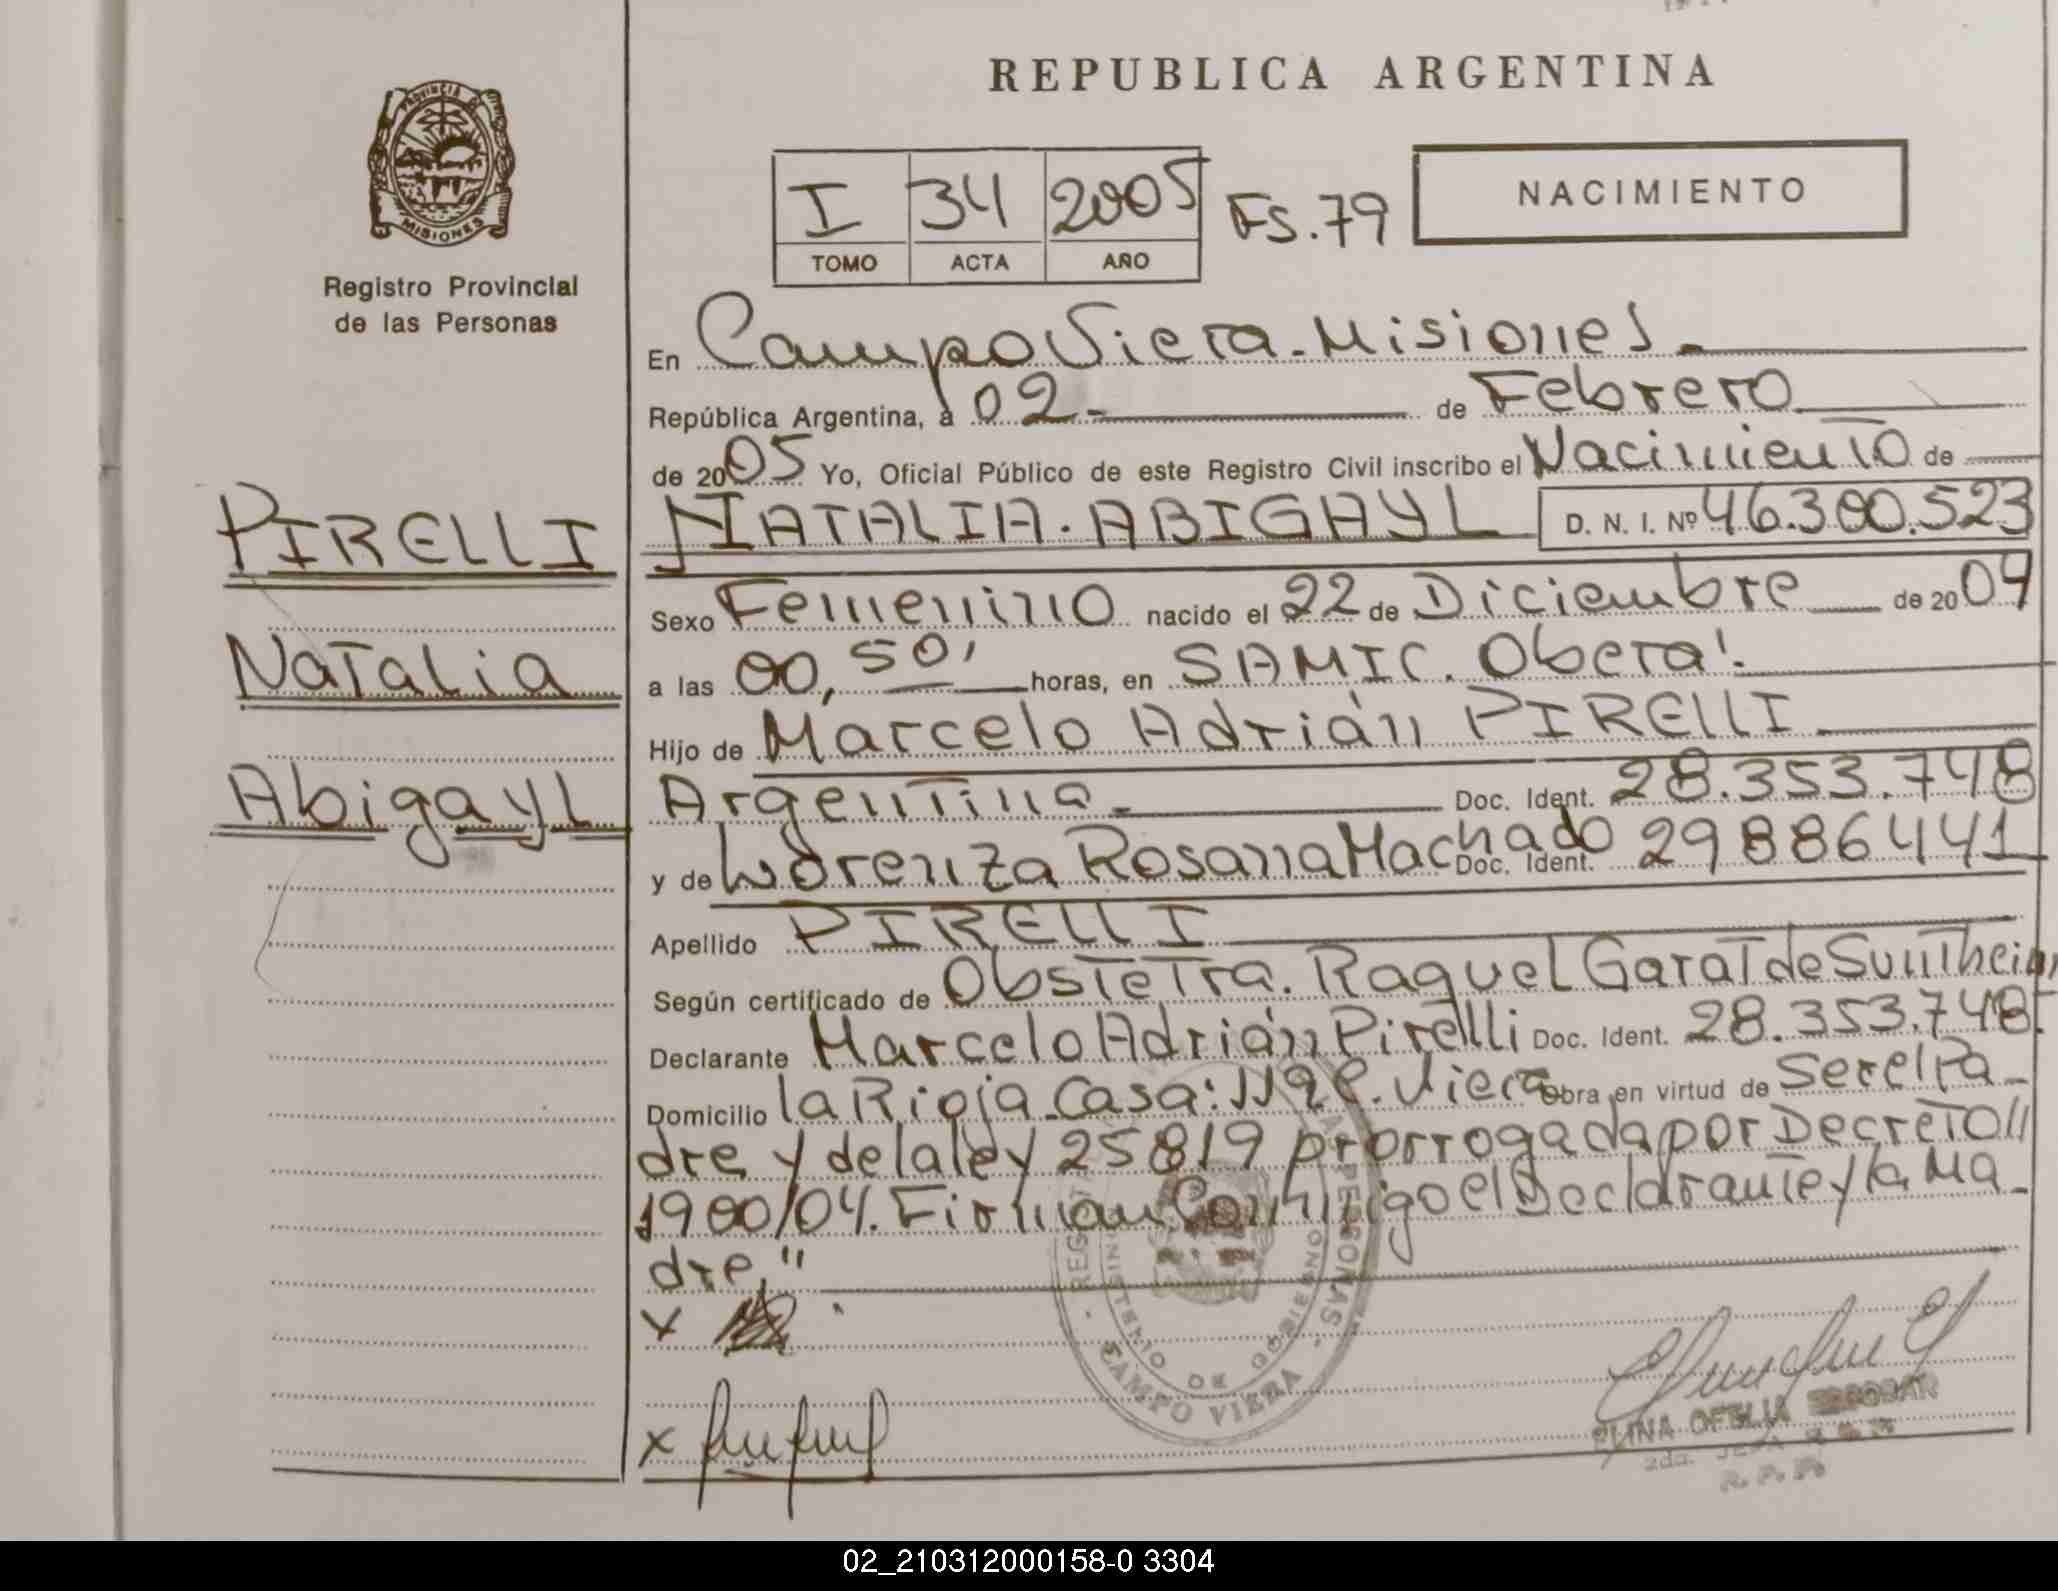 REPUBLICA ARGENTINA
PROVINCIA DE
MISIONES
Registro Provincial
de las Personas
I 34 2005 Fs.79
TOMO ACTA AÑO
NACIMIENTO
En Campo Viera-Misiones.
República Argentina, a 02- de Febrero
de 2005 Yo, Oficial Público de este Registro Civil inscribo el Nacimiento de
PIRELLI
Natalia
Abigayl
NATALIA. ABIGAYL D. N. I. Nº 46.300.523
Sexo Femenino nacido el 22 de Diciembre de 2004
a las 00,50' horas, en SAMIC. Oberá.
Hijo de Marcelo Adrián PIRELLI
Argentina Doc. Ident. 28.353.748
y de Lorenza Rosana Machado Doc. Ident. 29886441
Apellido PIRELLI
Según certificado de Obstetra. Raquel Garat de
Declarante Marcelo Adrián Pirelli Doc. Ident. 28.353.748.
Domicilio La Rioja Casa: 119 C. Viera Obra en virtud de Ser el Pa-
dre y de la ley 25819 prorrogada por Decreto//
1900/04. Firman Conmigo el Declarante y la Ma-
dre."
x
x
CAMPO VIERA
MINISTERIO DE GOBIERNO
OFELIA ESCOBAR
2da. JEFA
R. P. P.
02_210312000158-0 3304